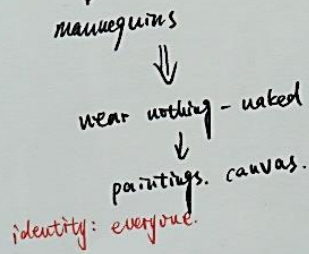 mannequins
wear nothing - naked
paintings. canvas.
identity: everyone.